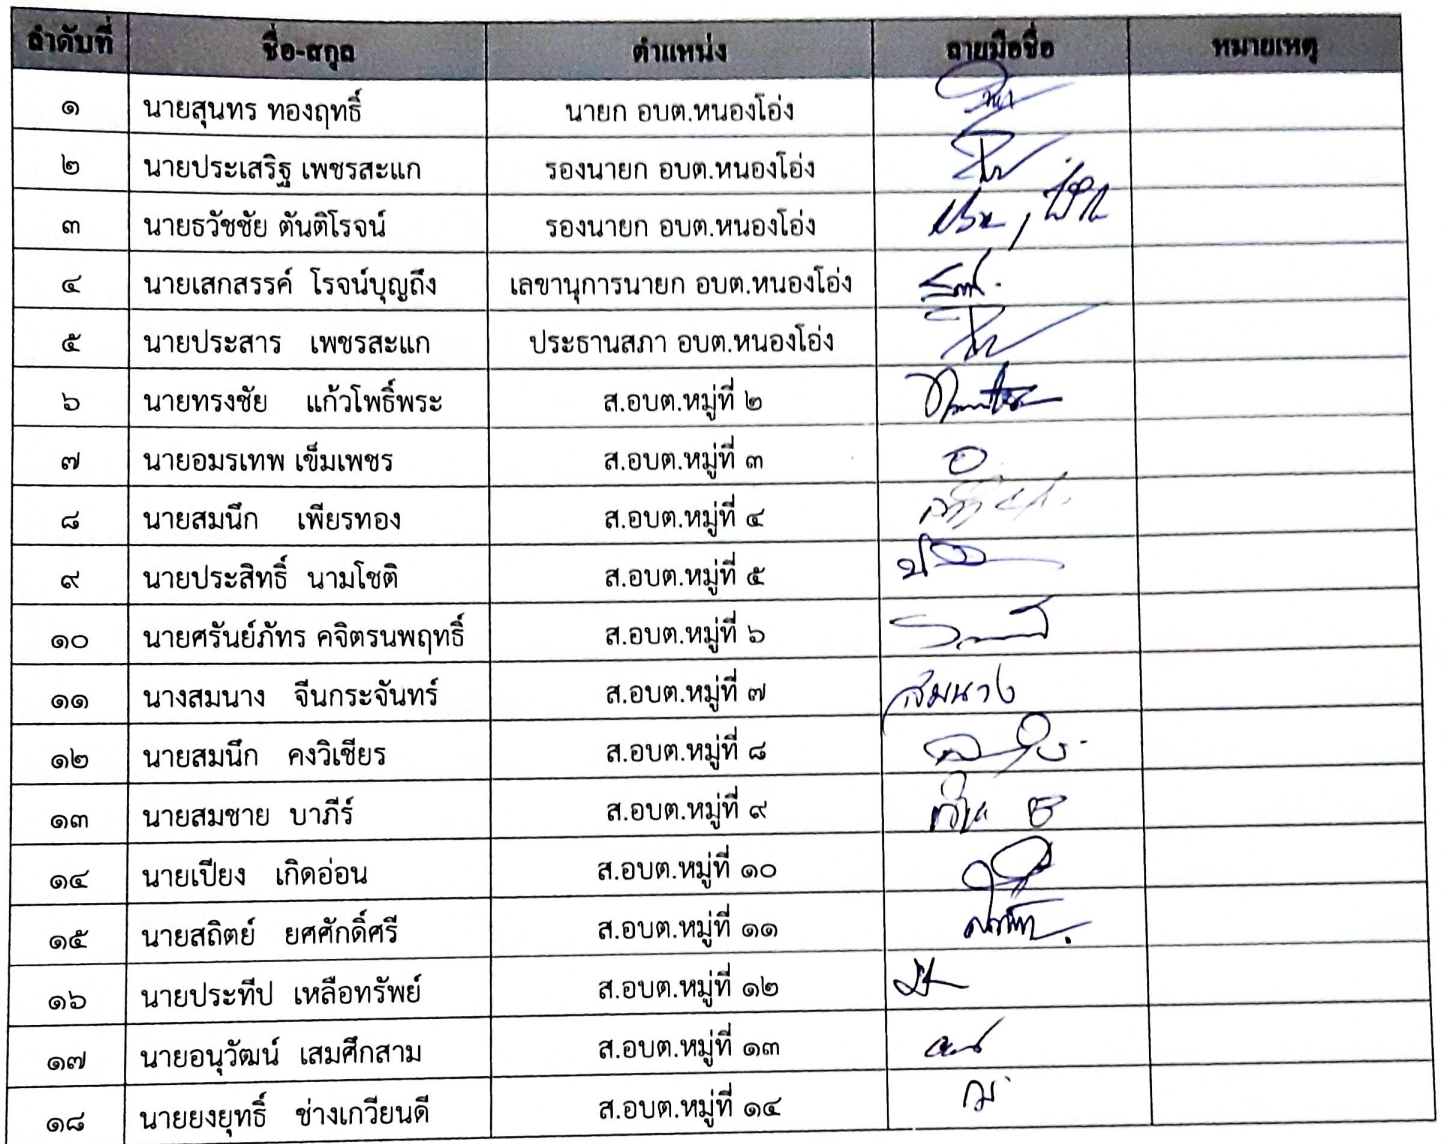 ลำดับที่ ชื่อ-สกุล ตำแหน่ง ลายมือชื่อ หมายเหตุ
๑ นายสุนทร ทองฤทธิ์ นายก อบต.หนองโอ่ง
๒ นายประเสริฐ เพชรสะแก รองนายก อบต.หนองโอ่ง
๓ นายธวัชชัย ตันติโรจน์ รองนายก อบต.หนองโอ่ง
๔ นายเสกสรรค์ โรจน์บุญถึง เลขานุการนายก อบต.หนองโอ่ง
๕ นายประสาร เพชรสะแก ประธานสภา อบต.หนองโอ่ง
๖ นายทรงชัย แก้วโพธิ์พระ ส.อบต.หมู่ที่ ๒
๗ นายอมรเทพ เข็มเพชร ส.อบต.หมู่ที่ ๓
๘ นายสมนึก เพียรทอง ส.อบต.หมู่ที่ ๔
๙ นายประสิทธิ์ นามโชติ ส.อบต.หมู่ที่ ๕
๑๐ นายศรันย์ภัทร คจิตรนพฤทธิ์ ส.อบต.หมู่ที่ ๖
๑๑ นางสมนาง จีนกระจันทร์ ส.อบต.หมู่ที่ ๗ สมนาง
๑๒ นายสมนึก คงวิเชียร ส.อบต.หมู่ที่ ๘
๑๓ นายสมชาย บาภีร์ ส.อบต.หมู่ที่ ๙
๑๔ นายเปียง เกิดอ่อน ส.อบต.หมู่ที่ ๑๐
๑๕ นายสถิตย์ ยศศักดิ์ศรี ส.อบต.หมู่ที่ ๑๑
๑๖ นายประทีป เหลือทรัพย์ ส.อบต.หมู่ที่ ๑๒
๑๗ นายอนุวัฒน์ เสมศึกสาม ส.อบต.หมู่ที่ ๑๓
๑๘ นายยงยุทธิ์ ช่างเกวียนดี ส.อบต.หมู่ที่ ๑๔